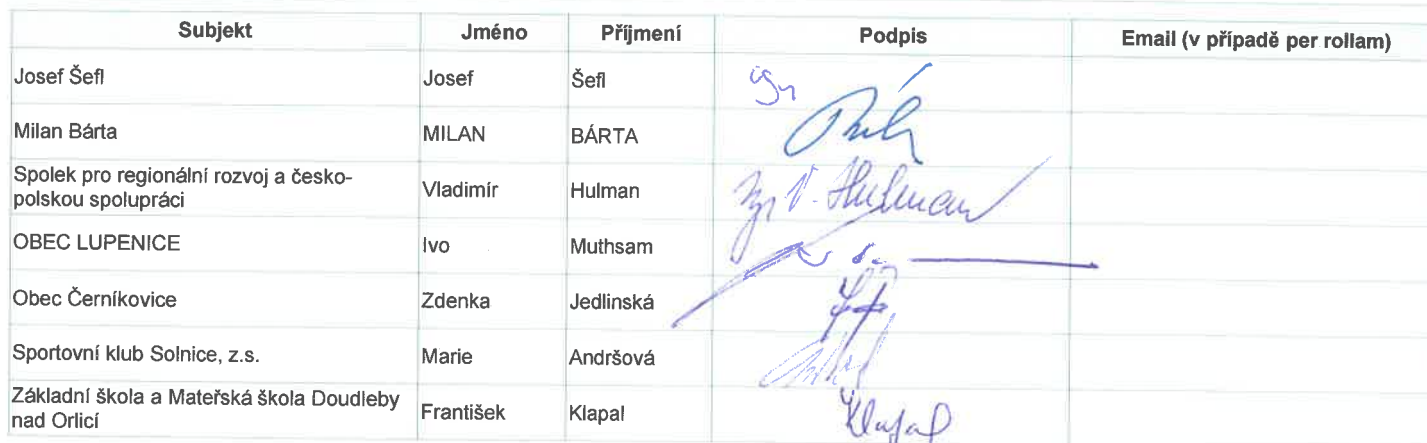 Subjekt Jméno Příjmení Podpis Email (v případě per rollam)
Josef Šefl Josef Šefl
Milan Bárta MILAN BÁRTA
Spolek pro regionální rozvoj a česko-
polskou spolupráci Vladimír Hulman V. Hulman
OBEC LUPENICE Ivo Muthsam
Obec Černíkovice Zdenka Jedlinská
Sportovní klub Solnice, z.s. Marie Andršová
Základní škola a Mateřská škola Doudleby
nad Orlicí František Klapal Klapal